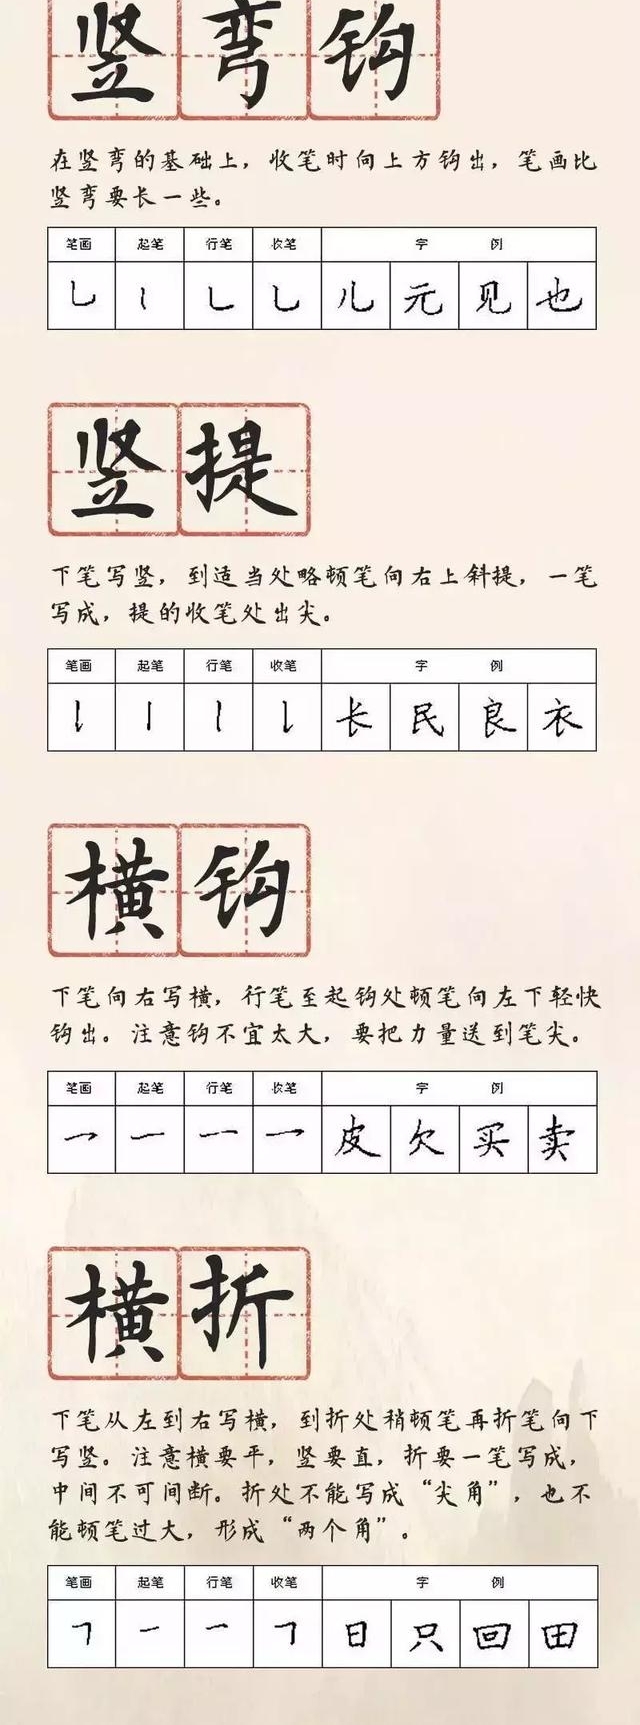 竖弯钩
在竖弯的基础上，收笔时向上方钩出，笔画比
竖弯要长一些。
笔画 起笔 行笔 收笔 字例
㇟ 丨 ㇄ ㇟ 儿 元 见 也
竖提
下笔写竖，到适当处略顿笔向右上斜提，一笔
写成，提的收笔处出尖。
笔画 起笔 行笔 收笔 字例
㇙ 丨 丨 ㇙ 长 民 良 衣
横钩
下笔向右写横，行笔至起钩处顿笔向左下轻快
钩出。注意钩不宜太大，要把力量送到笔尖。
笔画 起笔 行笔 收笔 字例
㇖ 一 一 ㇖ 皮 欠 买 卖
横折
下笔从左到右写横，到折处稍顿笔再折笔向下
写竖。注意横要平，竖要直，折要一笔写成，
中间不可间断。折处不能写成“尖角”，也不
能顿笔过大，形成“两个角”。
笔画 起笔 行笔 收笔 字例
㇕ 一 一 ㇕ 日 只 回 田